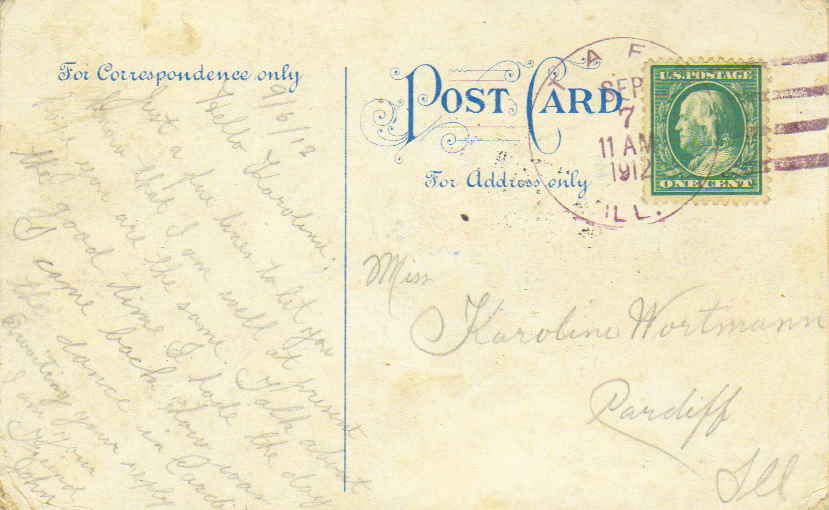 For Correspondence only
POST CARD
For Address only
SEP
7
11 AM
1912
ILL.
U.S. POSTAGE
ONE CENT
9/6/12
Hello Karoline;
Just a few lines to let you
know that I am well at present
hope you are the same. Talk about
the good time I hade the day
I came back. how was
the dance in Cardi
Awaiting your reply
I am your
Friend
John
Miss
Karoline Wortmann
Cardiff
Ill